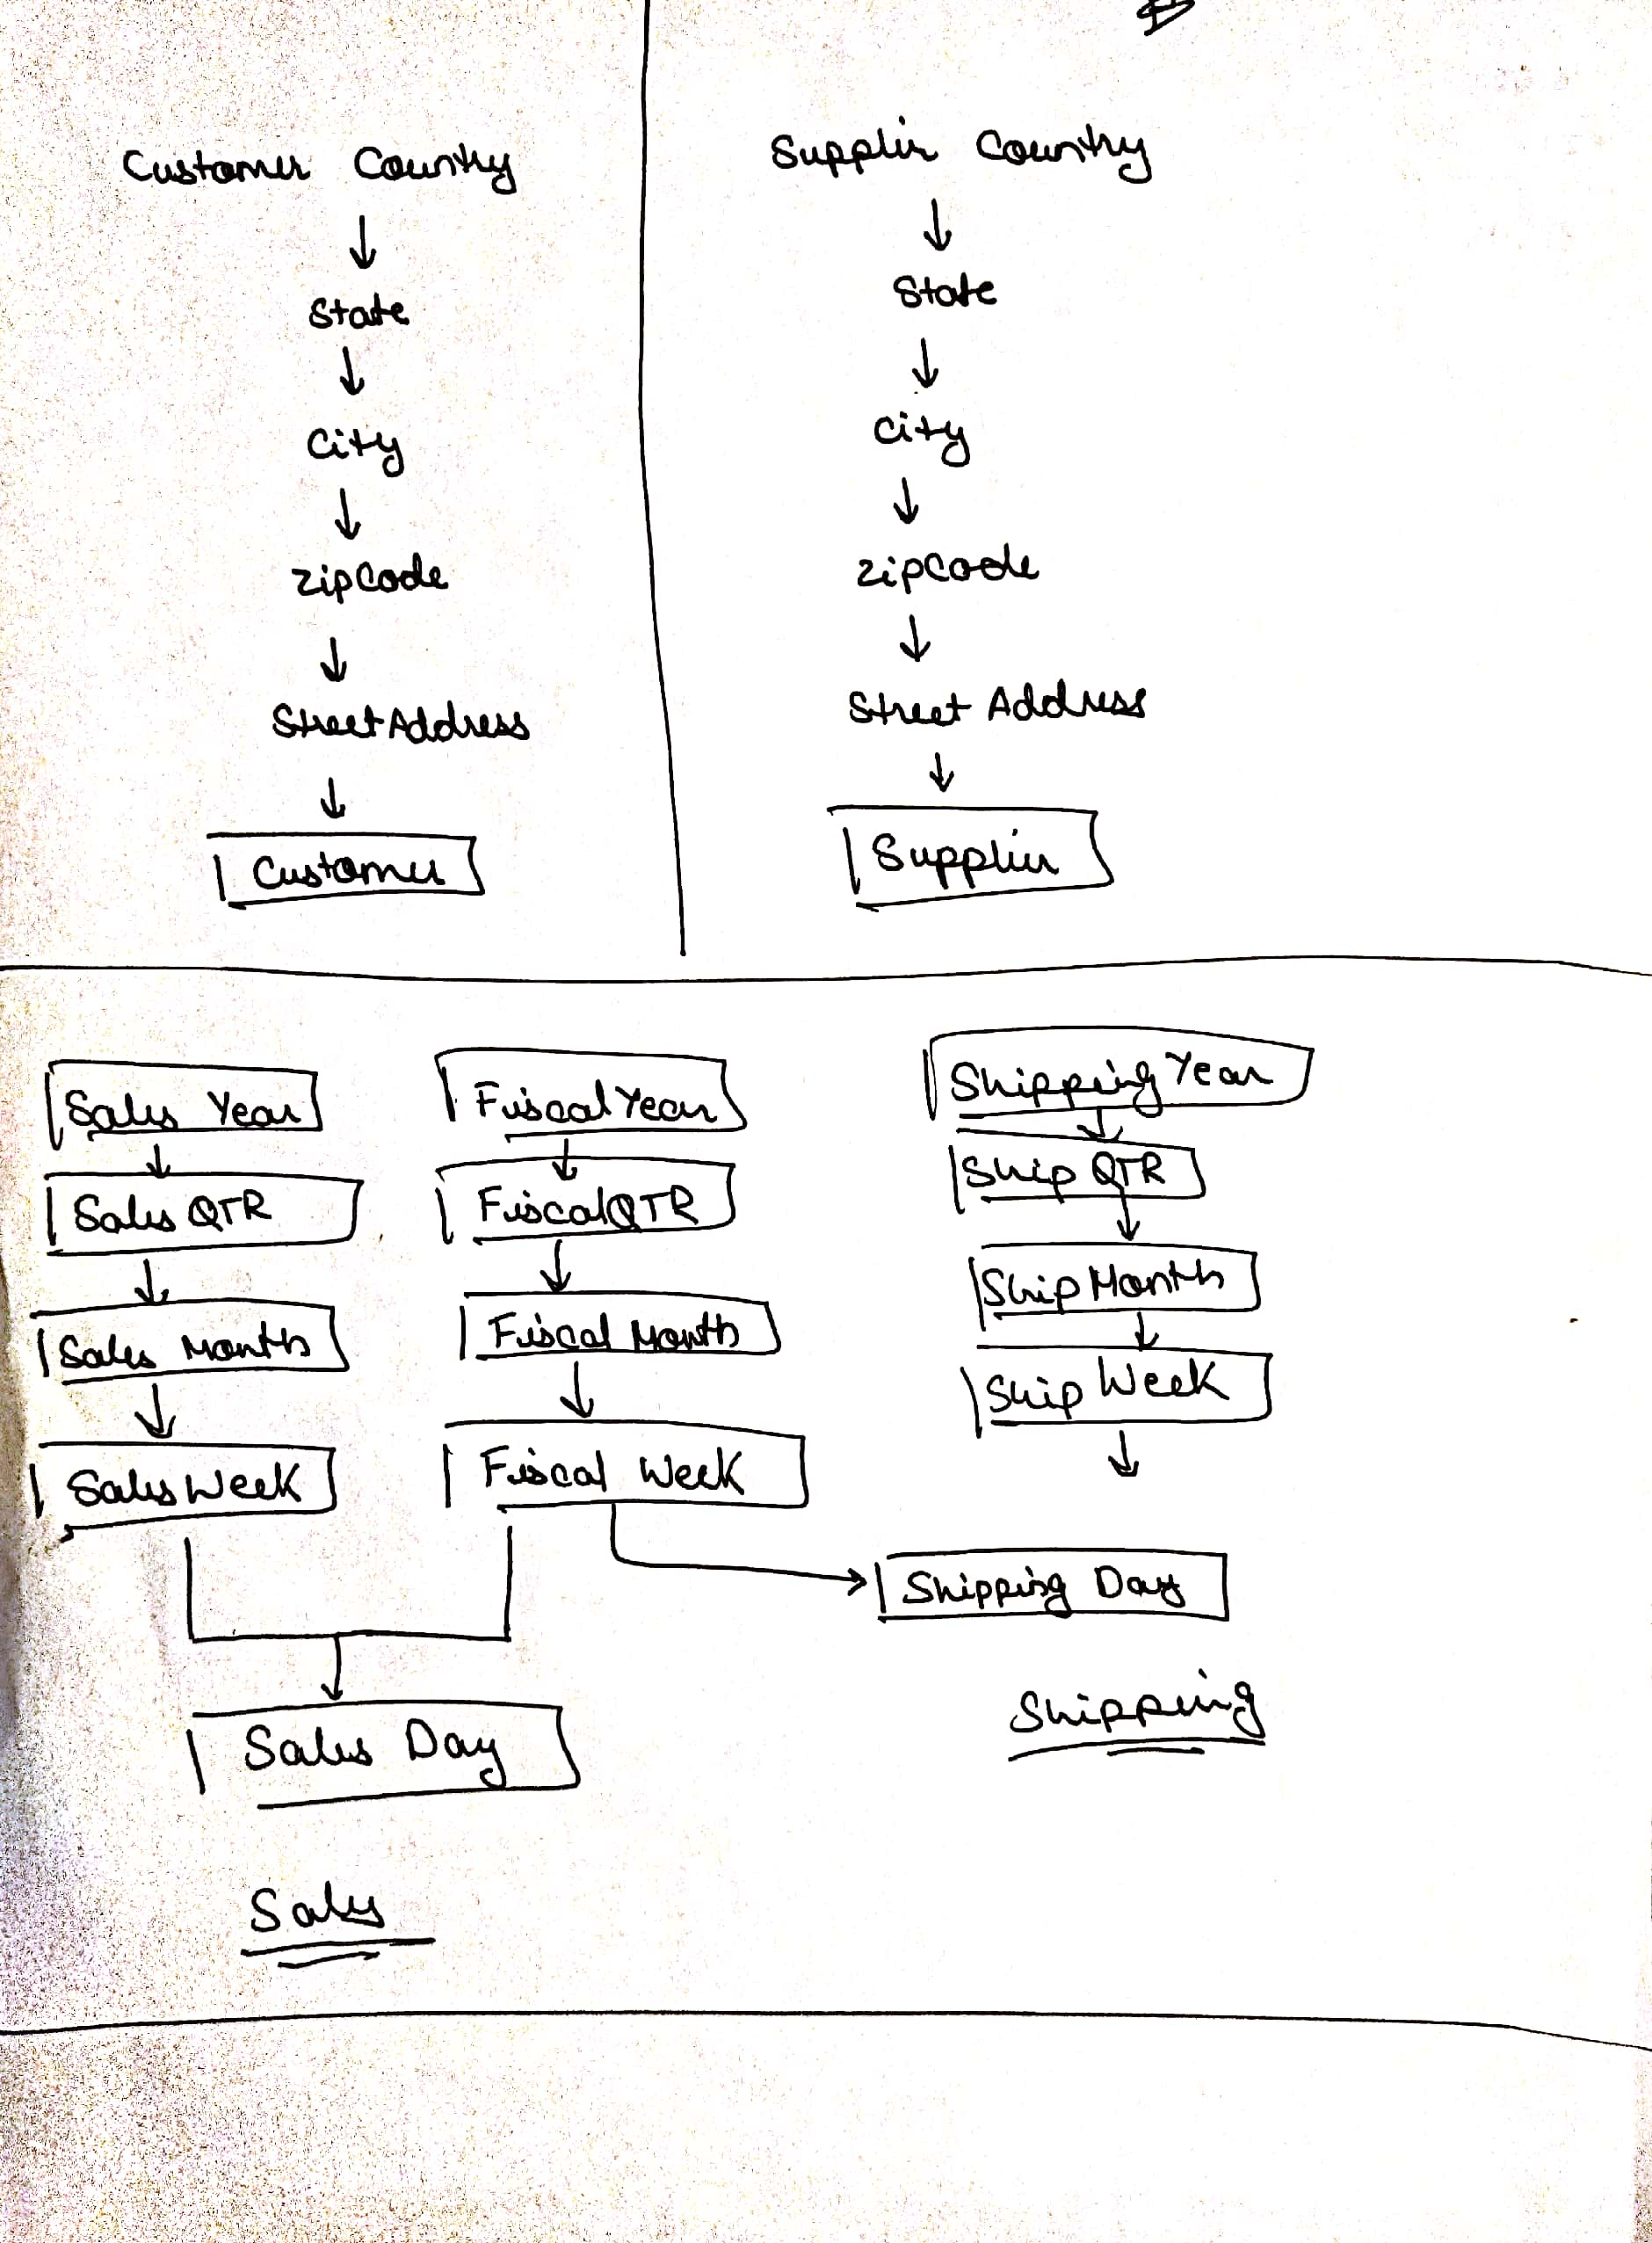 Customer Country
State
City
zipCode
Street Address
Customer
Supplier Country
State
City
zipcode
Street Address
Supplier
Sales Year
Sales QTR
Sales Month
Sales Week
Fiscal Year
Fiscal QTR
Fiscal Month
Fiscal Week
Sales Day
Sales
Shipping Year
Ship QTR
Ship Month
Ship Week
Shipping Day
Shipping